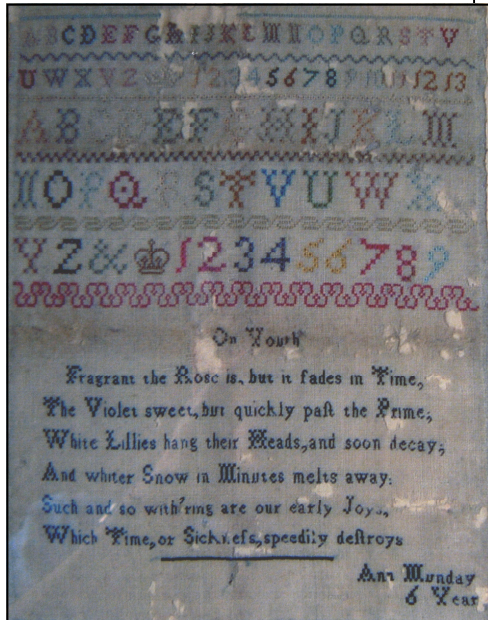 A B C D E F G H I J K L M N O P Q R S T V
U W X Y Z 1 2 3 4 5 6 7 8 9 10 11 12 13
A B C D E F G H I J K L M
N O P Q R S T V U W X
Y Z & 1 2 3 4 5 6 7 8 9
On Youth
Fragrant the Rose is, but it fades in Time,
The Violet sweet, but quickly paſt the Prime;
White Lillies hang their Heads, and soon decay;
And whiter Snow in Minutes melts away:
Such and so with'ring are our early Joys,
Which Time, or Sickneſs, speedily deſtroys
Ann Munday
6 Year